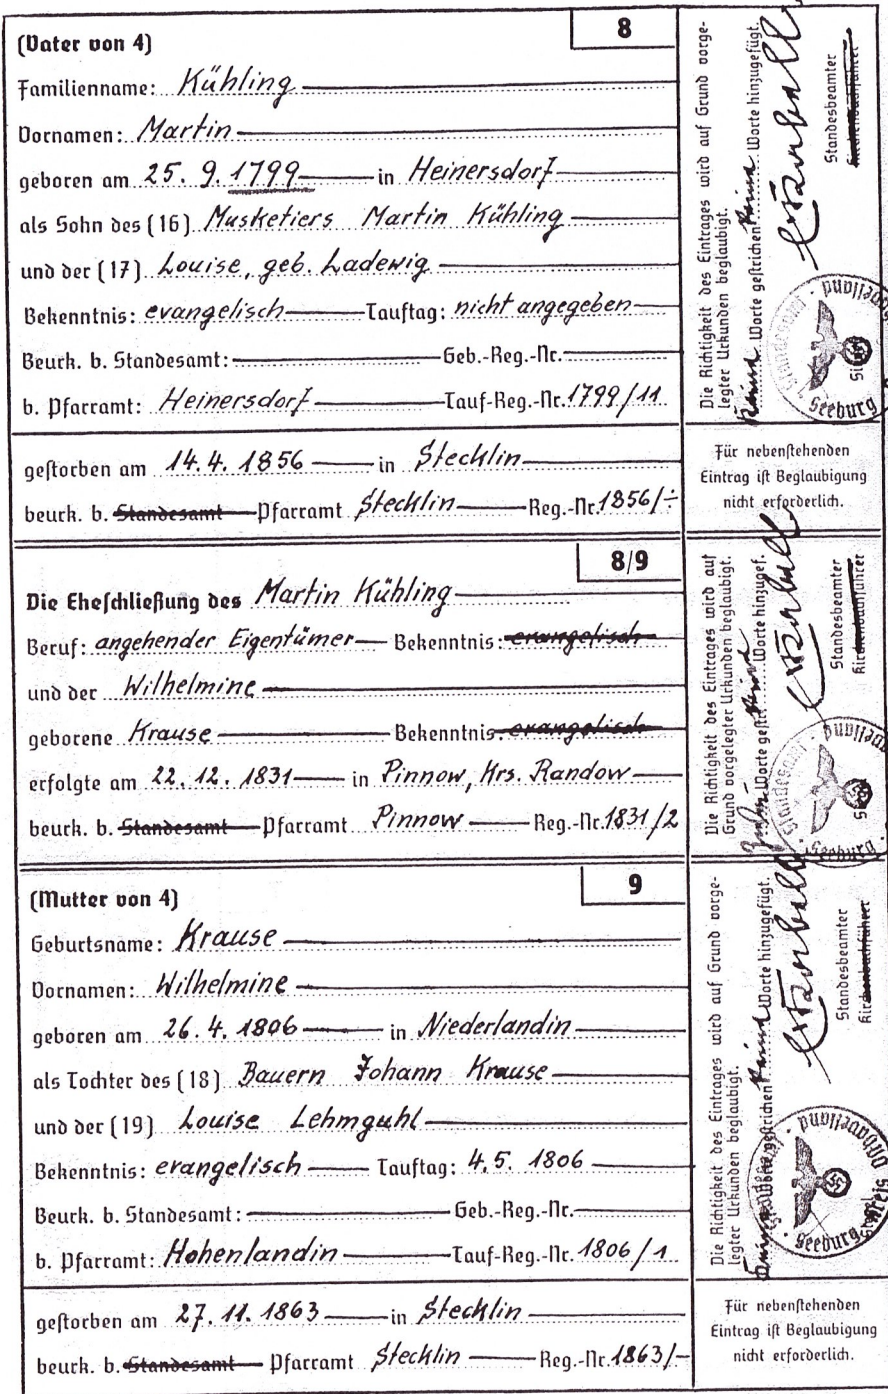 8
(Vater von 4)
Familienname: Kühling
Vornamen: Martin
geboren am 25. 9. 1799 in Heinersdorf
als Sohn des (16) Musketiers Martin Kühling
und der (17) Louise, geb. Ladewig
Bekenntnis: evangelisch Tauftag: nicht angegeben
Beurk. b. Standesamt: Geb.-Reg.-Nr.
b. Pfarramt: Heinersdorf Tauf-Reg.-Nr. 1799/11
gestorben am 14. 4. 1856 in Stecklin
beurk. b. Standesamt Pfarramt Stecklin Reg.-Nr. 1856/÷
Die Richtigkeit des Eintrages wird auf Grund vorge-
legter Urkunden beglaubigt.
Keine Worte gestrichen Keine Worte hinzugefügt.
Standesbeamter
Kirchenbuchführer
Standesamt Seeburg
Siegel
Für nebenstehenden
Eintrag ist Beglaubigung
nicht erforderlich.
8/9
Die Eheschließung des Martin Kühling
Beruf: angehender Eigentümer Bekenntnis: evangelisch
und der Wilhelmine
geborene Krause Bekenntnis: evangelisch
erfolgte am 22. 12. 1831 in Pinnow, Krs. Randow
beurk. b. Standesamt Pfarramt Pinnow Reg.-Nr. 1831/2
Die Richtigkeit des Eintrages wird auf
Grund vorgelegter Urkunden beglaubigt.
Worte gestr. Keine Worte hinzugef.
Standesbeamter
Kirchenbuchführer
Standesamt Seeburg
9
(Mutter von 4)
Geburtsname: Krause
Vornamen: Wilhelmine
geboren am 26. 4. 1806 in Niederlandin
als Tochter des (18) Bauern Johann Krause
und der (19) Louise Lehmguhl
Bekenntnis: evangelisch Tauftag: 4. 5. 1806
Beurk. b. Standesamt: Geb.-Reg.-Nr.
b. Pfarramt: Hohenlandin Tauf-Reg.-Nr. 1806/1
gestorben am 27. 11. 1863 in Stecklin
beurk. b. Standesamt Pfarramt Stecklin Reg.-Nr. 1863/-
Die Richtigkeit des Eintrages wird auf Grund vorge-
legter Urkunden beglaubigt.
Keine Worte gestrichen Keine Worte hinzugefügt.
Standesbeamter
Kirchenbuchführer
Seeburg Kreis Osthavelland
Für nebenstehenden
Eintrag ist Beglaubigung
nicht erforderlich.